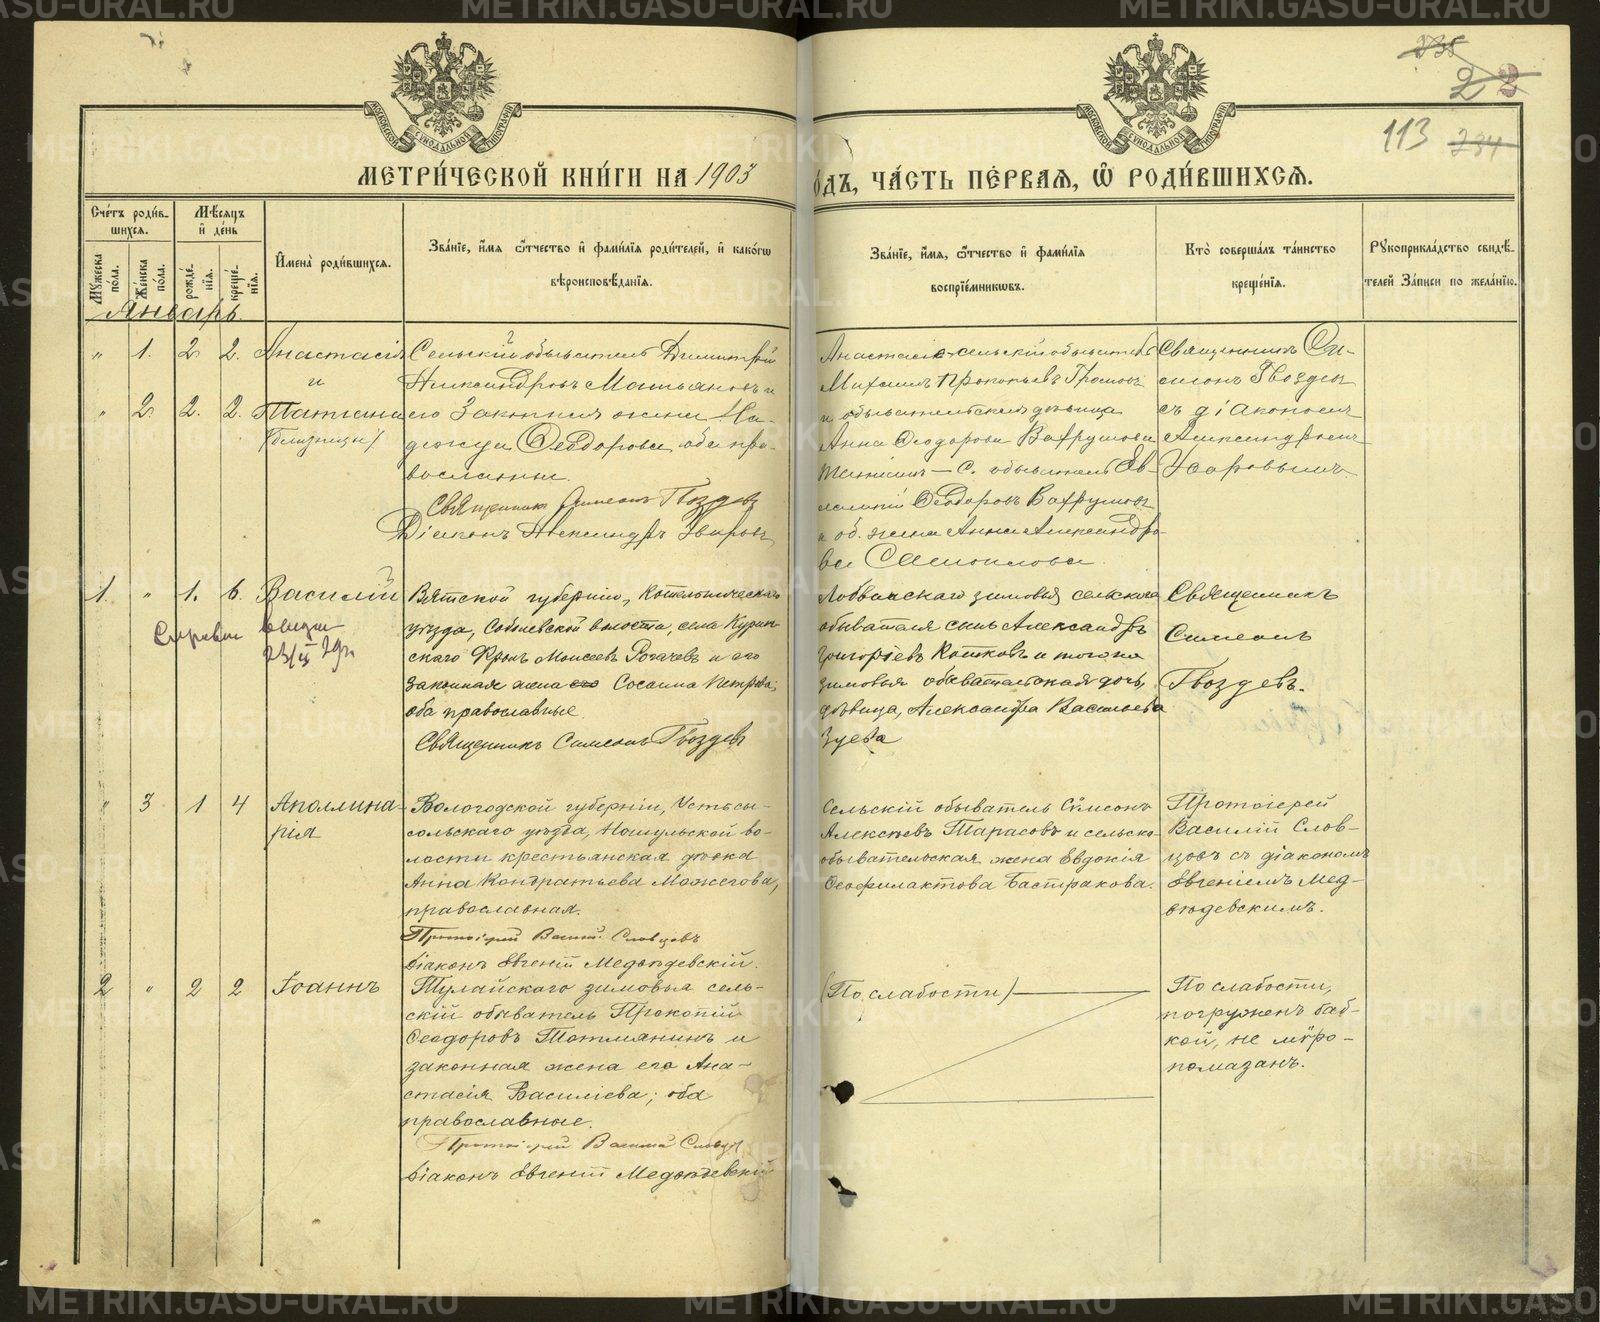 235
22
113 234
МОСКОВСКОЙ СѴНОДАЛЬНОЙ ТИПОГРАФІИ
МОСКОВСКОЙ СѴНОДАЛЬНОЙ ТИПОГРАФІИ
МЕТРИ́ЧЕСКОЙ КНИ́ГИ НА 1903
О́ДЪ, ЧА́СТЬ ПЕ́РВАЯ, Ѿ РОДИ́ВШИХСЯ.
Сче́тъ роди́вшихся.
Мꙋ́жеска по́ла.
Же́нска по́ла.
Мѣ́сяцъ и҆ де́нь
рожде́нїя.
креще́нїя.
И҆мена̀ роди́вшихся.
Зва́нїе, и҆́мя ѻ҆́тчество и҆ фами́лїя роди́телей, и҆ како́гѡ
вѣроисповѣ́данїя.
Зва́нїе, и҆́мя, ѻ҆́тчество и҆ фами́лїя
воспрїе́мникѡвъ.
Кто̀ соверша́лъ та́инство
креще́нїя.
Рꙋкоприкла́дство свидѣ́-
телей За́писи по жела́нїю.
Январь.
„ 1. 2. 2. Анастасія
и
„ 2. 2. 2. Татiана
(близнецы)
Сельскій обыватель Димитрій
Александровъ Матьяновъ и
его законная жена На-
дежда Ѳеодорова, оба пра-
вославные.
Священникъ Симеонъ Гвоздев
Діаконъ Александръ Уваровъ
Анастасіи — сельскій обыватель
Михаилъ Прокопьевъ Громовъ
и обывательская дѣвица
Анна Ѳеодорова Вахрушева
Татіаны — с. обыватель Ев-
Ѳеодоровъ Вахрушевъ
и об. жена Анна Александро-
ва Самойлова.
Священникъ Си-
меонъ Гвоздевъ
съ діакономъ
Александромъ
Уваровымъ.
1. „ 1. 6. Василій
23/IX 29г.
Вятской губерніи, Котельническаго
уѣзда, Соболевской волости, села Курин-
скаго Фролъ Моисеевъ Рогачевъ и его
законная жена его Сосанна Петрова;
оба православные.
Священникъ Симеонъ Гвоздевъ
Лобвинскаго зимовья сельскаго
обывателя сынъ Александръ
Григорьевъ Котковъ и того же
зимовья обывательская дочь,
дѣвица, Александра Васильева
Зуева
Священникъ
Симеонъ
Гвоздевъ.
„ 3 1 4 Аполлина-
рія
Вологодской губерніи, Устьсы-
сольскаго уѣзда, Ношульской во-
лости крестьянская дѣвка
Анна Кондратьева Можегова,
православная.
Протоіерей Василій Словцовъ
Діаконъ Евгеній Медвѣдевскій.
Сельскій обыватель Симеонъ
Алексѣевъ Тарасовъ и сельско-
обывательская жена Евдокія
Ѳеофилактова Бастракова.
Протоіерей
Василій Слов-
цовъ съ діакономъ
Евгеніемъ Мед-
вѣдевскимъ.
2 „ 2 2 Іоаннъ
Тулайскаго зимовья сель-
скій обыватель Прокопій
Ѳеодоровъ Тотмянинъ и
законная жена его Ана-
стасія Василіева; оба
православные.
Протоіерей Василій Словцовъ
Діаконъ Евгеній Медвѣдевскій
(По слабости)
По слабости,
погруженъ баб-
кой, не мѵро-
помазанъ.
METRIKI.GASU-URAL.RU